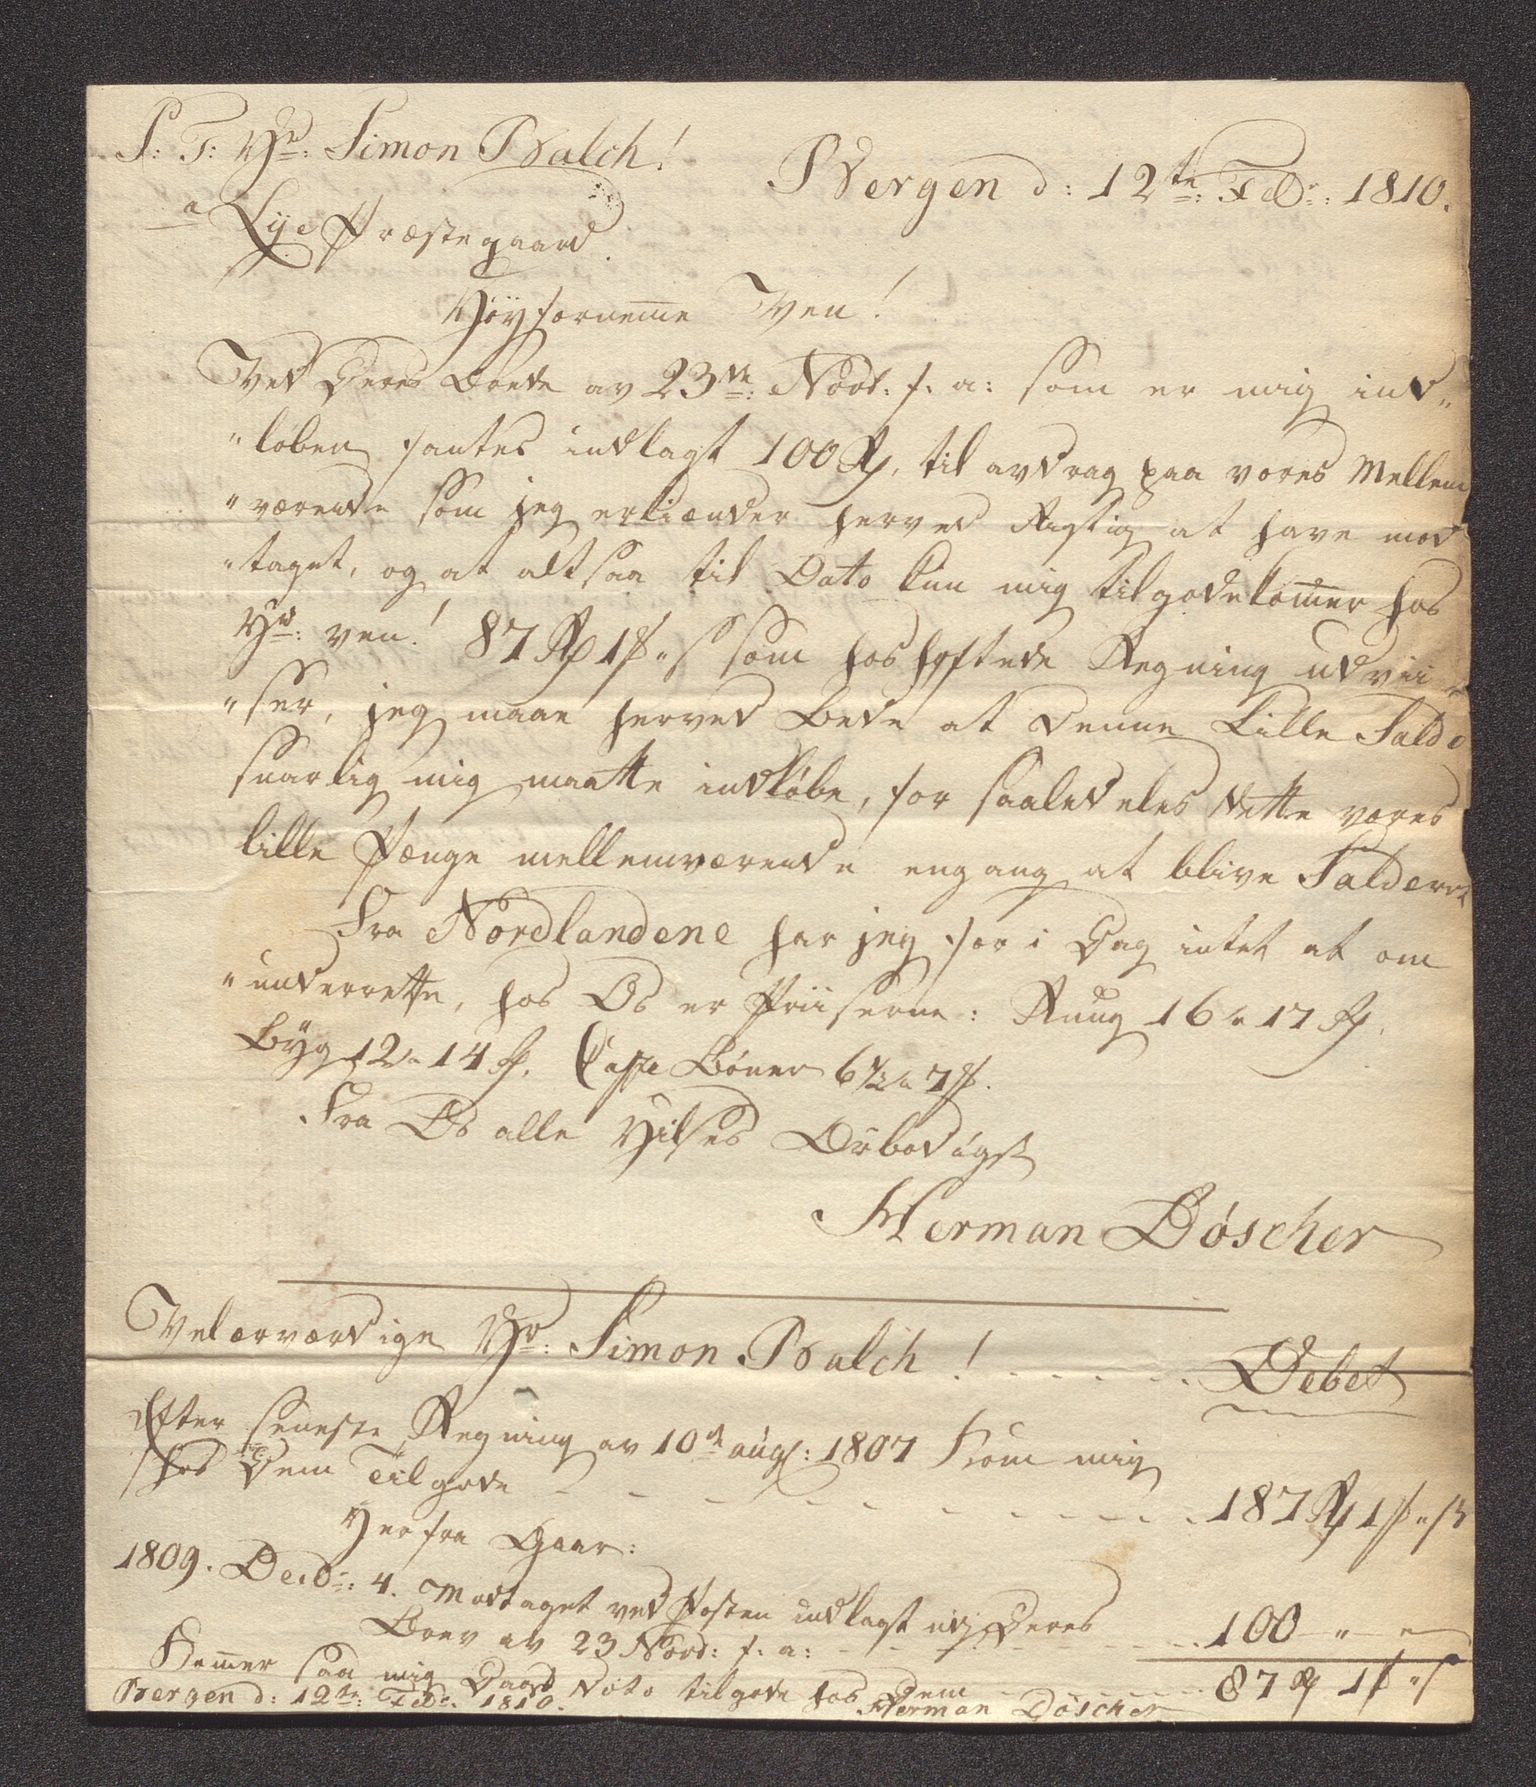 S: T: Hr: Simon Balch!
Bergen d: 12te Febr: 1810.
a Lye Præstegaard.
Høyfornemme Ven!
Ved Deres Brev av 23de Novb: f: a: som er mig ind„
„løben santes indlagt 100 Rd, til avdrag paa vores Mellem
„værende som jeg erkiender herved Rigtig at have mod
„taget, og at altsaa til Dato kun mig tilgodekommer hos
Hr: ven! 87 Rd 1 # „ s som hoshæftede Regning udvii„
„ser, jeg maae herved Bede at denne Lille Saldo
snarlig mig maatte indløbe, for saaledeles dette vores
lille Penge mellemværende engang at blive Salderet
Fra Nordlandene har jeg for i Dag intet at om
„underrette, hos Os er Priiserne: Ruug 16 a 17 Rd.
Byg 12 a 14 Rd. Caffe Bønner 6 1/2 a 7 #.
Fra Os alle Hilses Ærbødigst
Herman Döscher
Velærværdige Hr: Simon Balch! Debet
Efter seneste Regning av 10de aug: 1807 Kom mig
hos Dem Tilgode 187 Rd 1 # „ s
Herfra Gaar:
1809. Decb: 4. Modtaget ved Posten indlagt udj Deres
Brev av 23 Novb: f: a: 100 „ „
Kommer saa mig Dags Dato tilgode hos Dem 87 Rd 1 # „ s
Bergen d: 12te Febr. 1810. Herman Döscher